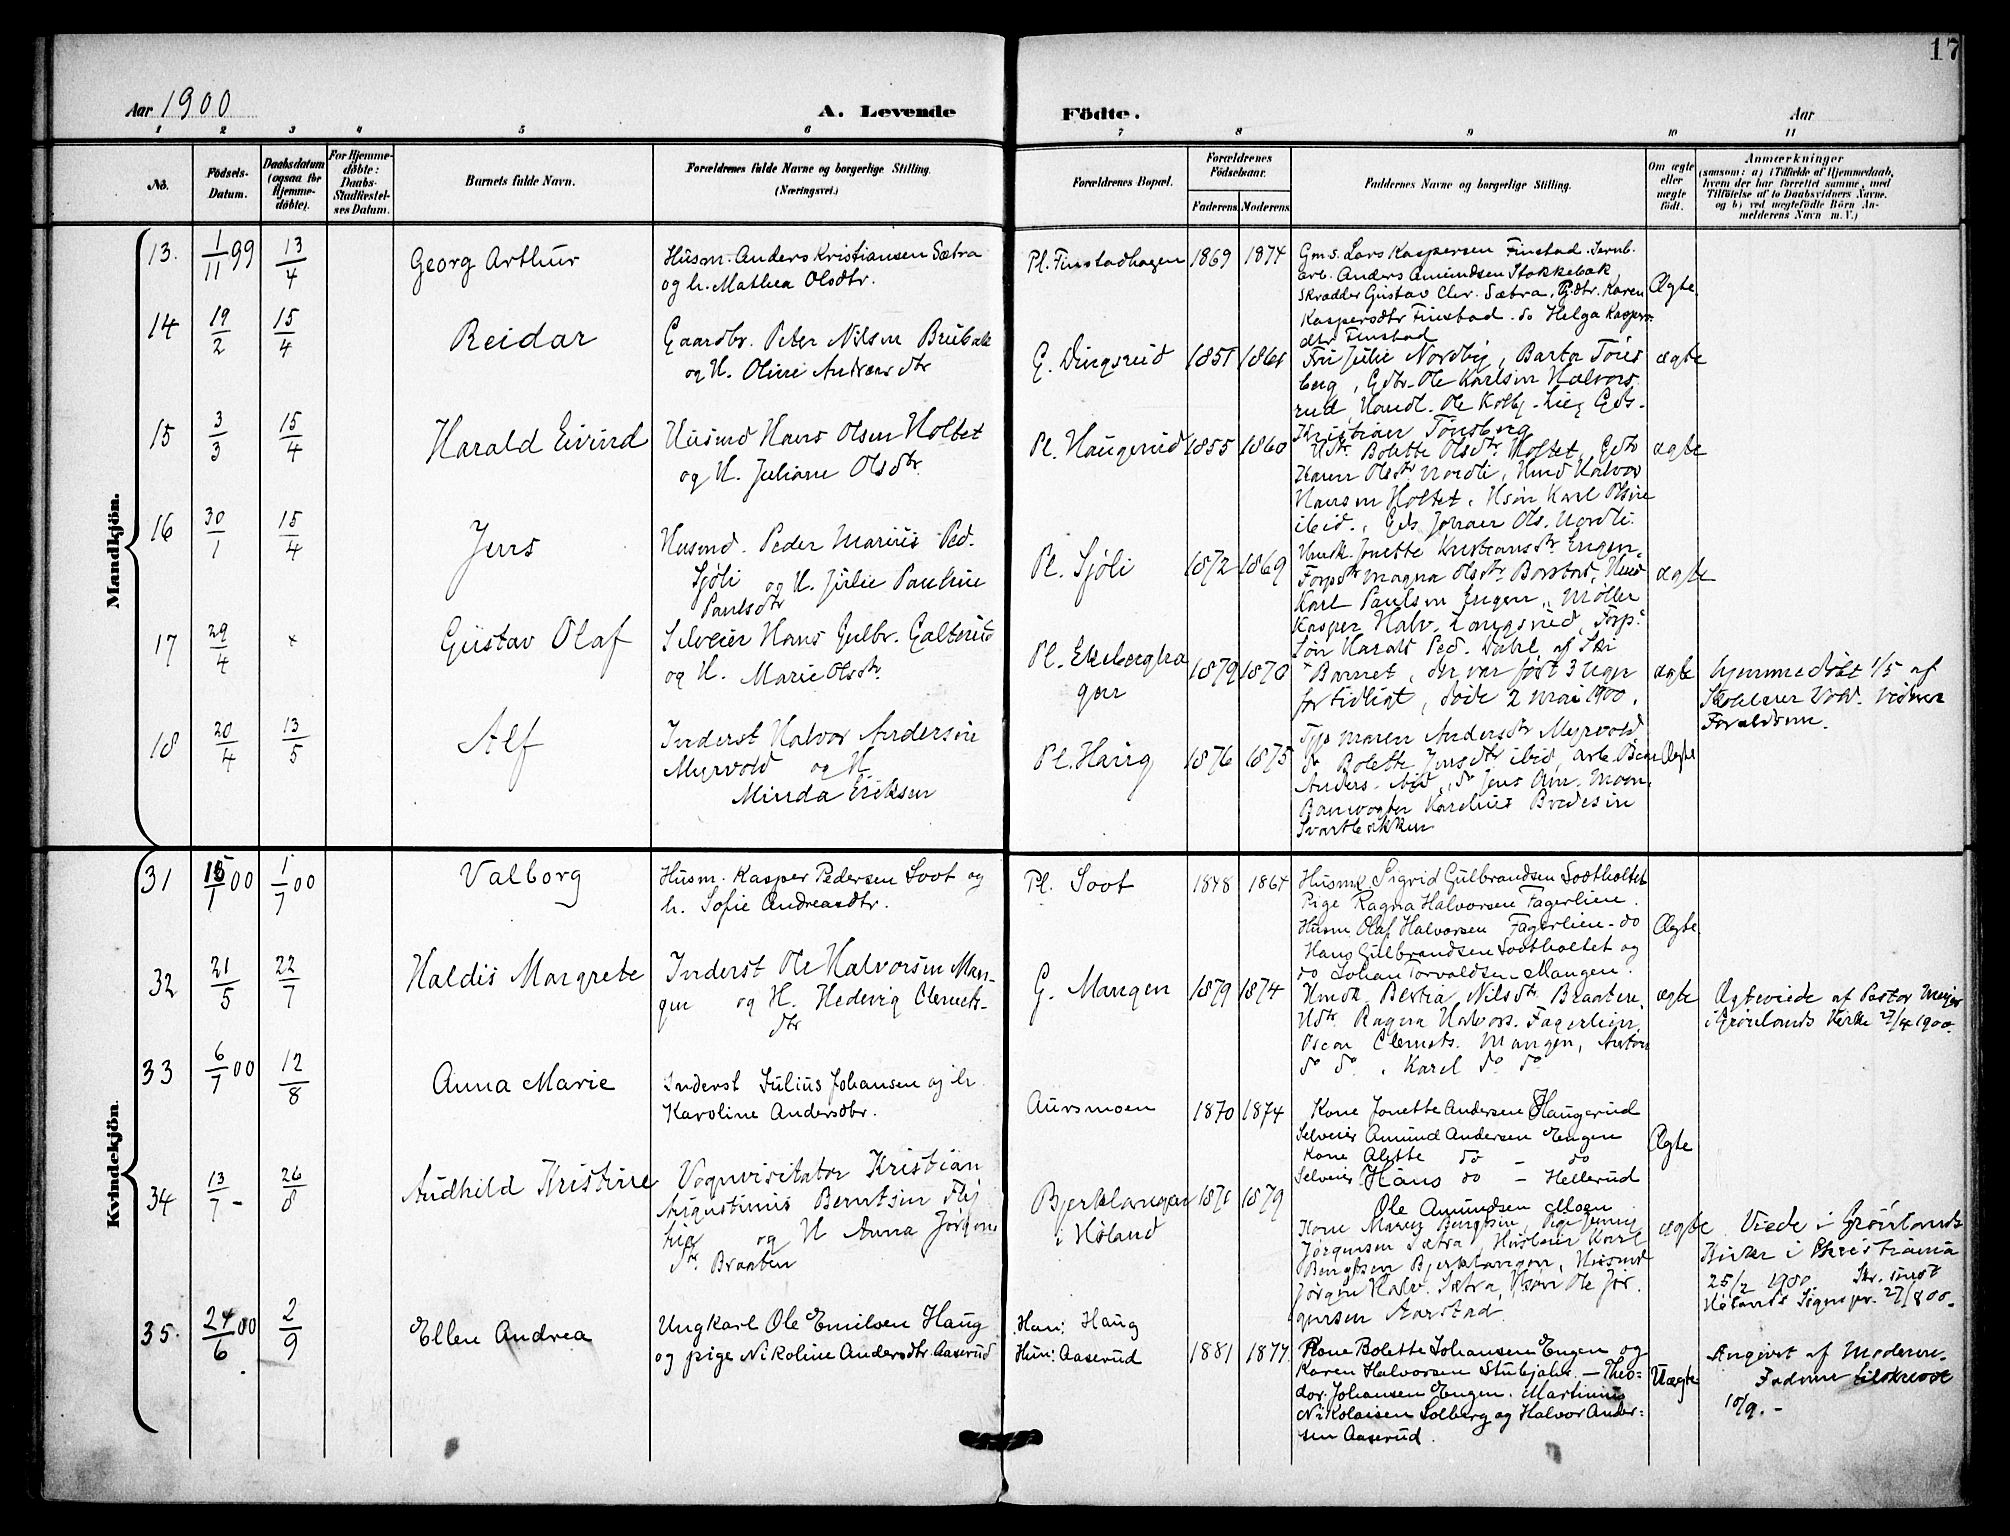 17
Aar 1900
A. Levende
Födte.
Aar
1 2 3 4 5 6 7 8 9 10 11
No.
Födsels-
Datum.
Daabsdatum
(ogsaa for
Hjemme-
döbte).
For Hjemme-
döbte:
Daabs-
Stadfæstel-
ses Datum.
Barnets fulde Navn.
Forældrenes fulde Navne og borgerlige Stilling.
(Næringsvei.)
Forældrenes Bopæl.
Forældrenes
Födselsaar.
Faderens Moderens
Faddernes Navne og borgerlige Stilling.
Om ægte
eller
uægte
födt.
Anmærkninger
(saasom: a) i Tilfælde af Hjemmedaab,
hvem der har forrettet samme, med
Tilföielse af to Daabsvidners Navne.
og b) ved uægtefödte Börn An-
melderens Navn m. V.)
Mandkjön.
13. 1/11 99 13/4
Georg Arthur
Husm. Anders Kristiansen Sætra
og h. Mathea Olsdtr.
Pl. Finstadhagen 1869 1874
Gms. Lars Kaspersen Finstad. Jernb.
arb. Anders Amundsen Stokkebæk,
Skrædder Gustav Chr. Sætra, Pgdtr. Karen
Kaspersdtr Finstad. do Helga Kaspers-
dtr Finstad
Ægte
14 19/2 15/4
Reidar
Gaardbr. Peter Nilsen Brubak
og H. Oline Andreasdtr
G. Dingsrud 1851 1861
Frk Julie Nordby, Barta Töns
berg, Gdbr. Ole Karlsen Halvors
rud, Handl. Ole Kolbj. Lie, Gds.
Kristian Tönsberg
ægte
15 3/3 15/4
Harald Eivind
Husmd Hans Olsen Holtet
og H. Juliane Olsdtr.
Pl. Haugerud 1855 1860
Hdtr. Bolette Olsdtr Holtet, Gdtr
Karen Olsdtr Nordli, Hmd Halvor
Hansen Holtet, Hsön Karl Olsen
ibid., Gds Johan Ols. Nordli.
ægte
16 30/1 15/4
Jens
Husmd. Peder Marius Ped.
Sjöli og H. Julie Pauline
Paulsdtr
Pl. Sjöli 1872 1869
Hmdk. Jonette Kristiansdtr Engen,
Forpdtr Magna Olsdtr Borstad, Hmd
Karl Paulsen Engen, Möller
Kasper Halv. Langsrud, Forp.
Sön Harald Ped. Dahl af Ski
ægte
17 29/4 ×
Gustav Olaf
Selveier Hans Gulbr. Galterud
og H. Marie Olsdtr.
Pl. Ekebergha
gen 1879 1870
× Barnet, der var födt 3 Uger
for tidligt, döde 2 Mai 1900.
ægte
hjemmedöbt 1/5 af
Skolelærer Vold. Vidner
Forældrene.
18 20/4 13/5
Alf
Inderst Halvor Andersen
Myrvold og H
Minda Eriksen
Pl. Haug 1876 1875
Maren Andersdtr Myrvold
do Bolette Jensdtr ibid, Arb. Bern
Anders. ibid, do Jens Am. Moen,
Banevogter Karelius Bredesen
Svartbækken
Ægte
Kvindekjön.
31 15/1 00 1/7 00
Valborg
Husm. Kasper Pedersen Soot og
h. Sofie Andreasdtr.
Pl. Soot 1848 1864
Husmk. Sigrid Gulbrandsen Sootholtet
Pige Ragna Halvorsen Fagerlien.
Husm Olaf Halvorsen Fagerlien - do
Hans Gulbrandsen Sootholtet og
do Johan Torvaldsen Mangen.
Ægte
32 21/5 22/7
Haldis Margrete
Inderst Ole Halvorsen Man-
gen og H. Hedevig Clemets-
dtr
G. Mangen 1879 1874
Hmdk Bertia Nilsdtr Braaten,
Hdtr. Ragna Halvors. Fagerlien,
Oscar Clemets. Mangen, Anton
do do, Karl do do
ægte
Ægteviede af Pastor Meyer
i Grönlands Kirke 27/4 1900.
33 6/7 00 12/8
Anna Marie
Inderst Julius Johansen og h.
Karoline Andersdtr.
Aursmoen 1870 1874
Kone Jonette Andersen Haugerud
Selveier Amund Andersen Engen
Kone Alette do - do
Selveier Hans do - Hellerud
Ole Amundsen Moen
Ægte
34 13/7 - 26/8
Audhild Kristine
Vognvisitator Kristian
Augustinus Berntsen
og H Anna Jörgens
dtr. Braaten
Bjerklangen
i Höland 1871 1879
Kone Maren Bengtsen, Pige Jenny
Jörgensen Sætra, Husbeier Karl
Bengtsen Bjerklangen, Husmd
Jörgen Halv. Sætra, Hsön Ole Jör
gensen Aarstad
ægte
Viede i Grönlands
Kirke i Christiania
25/2 1900. Skr. innst
Hölands Sognepr. 27/8 00.
35. 24/6 00 2/9
Ellen Andrea
Ungkarl Ole Emilsen Haug
og pige Nikoline Andersdtr. Aaserud
Han: Haug
Hun: Aaserud 1881 1877
Kone Bolette Johansen Engen og
Karen Halvorsen Stubjahr. - Theo-
dor Johansen Engen. Martinus
Nikolaisen Solberg og Halvor Ander-
sen Aaserud.
Uægte
Angivet af Moderen.
Faderen tilskrevet
10/9. -